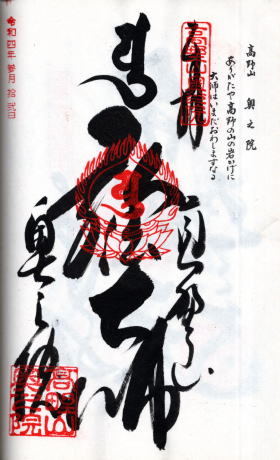 高野山　奥之院
ありがたや高野の山の岩かげに
大師はいまだおわしますなる
奉拝
高野山
弘法大師
奥之院
令和四年参月拾弐日
高野山
奥之院